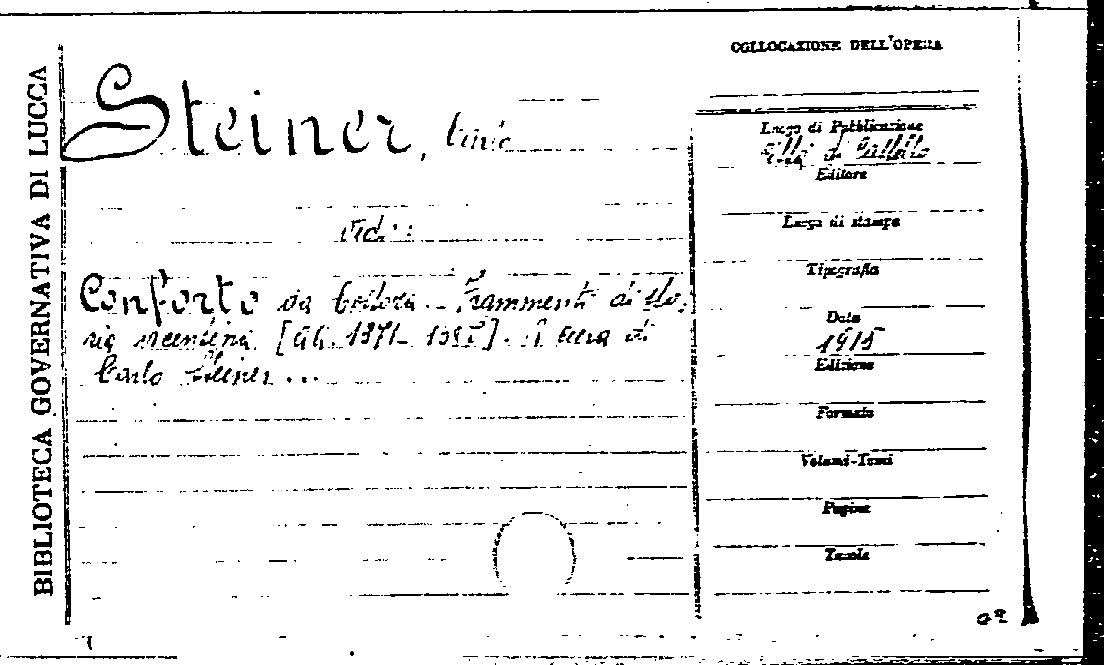 BIBLIOTECA GOVERNATIVA DI LUCCA
Steiner, Carlo
Vedi:
Conforto da Costoza. Frammenti di sto-
ria vicentina [AA. 1371- 1387]. A cura di
Carlo Steiner...
COLLOCAZIONE DELL'OPERA
Luogo di Pubblicazione
Città di Castello
Editore
Luogo di stampa
Tipografia
Data
1915
Edizione
Formato
Volumi-Tomi
Pagine
Tavole